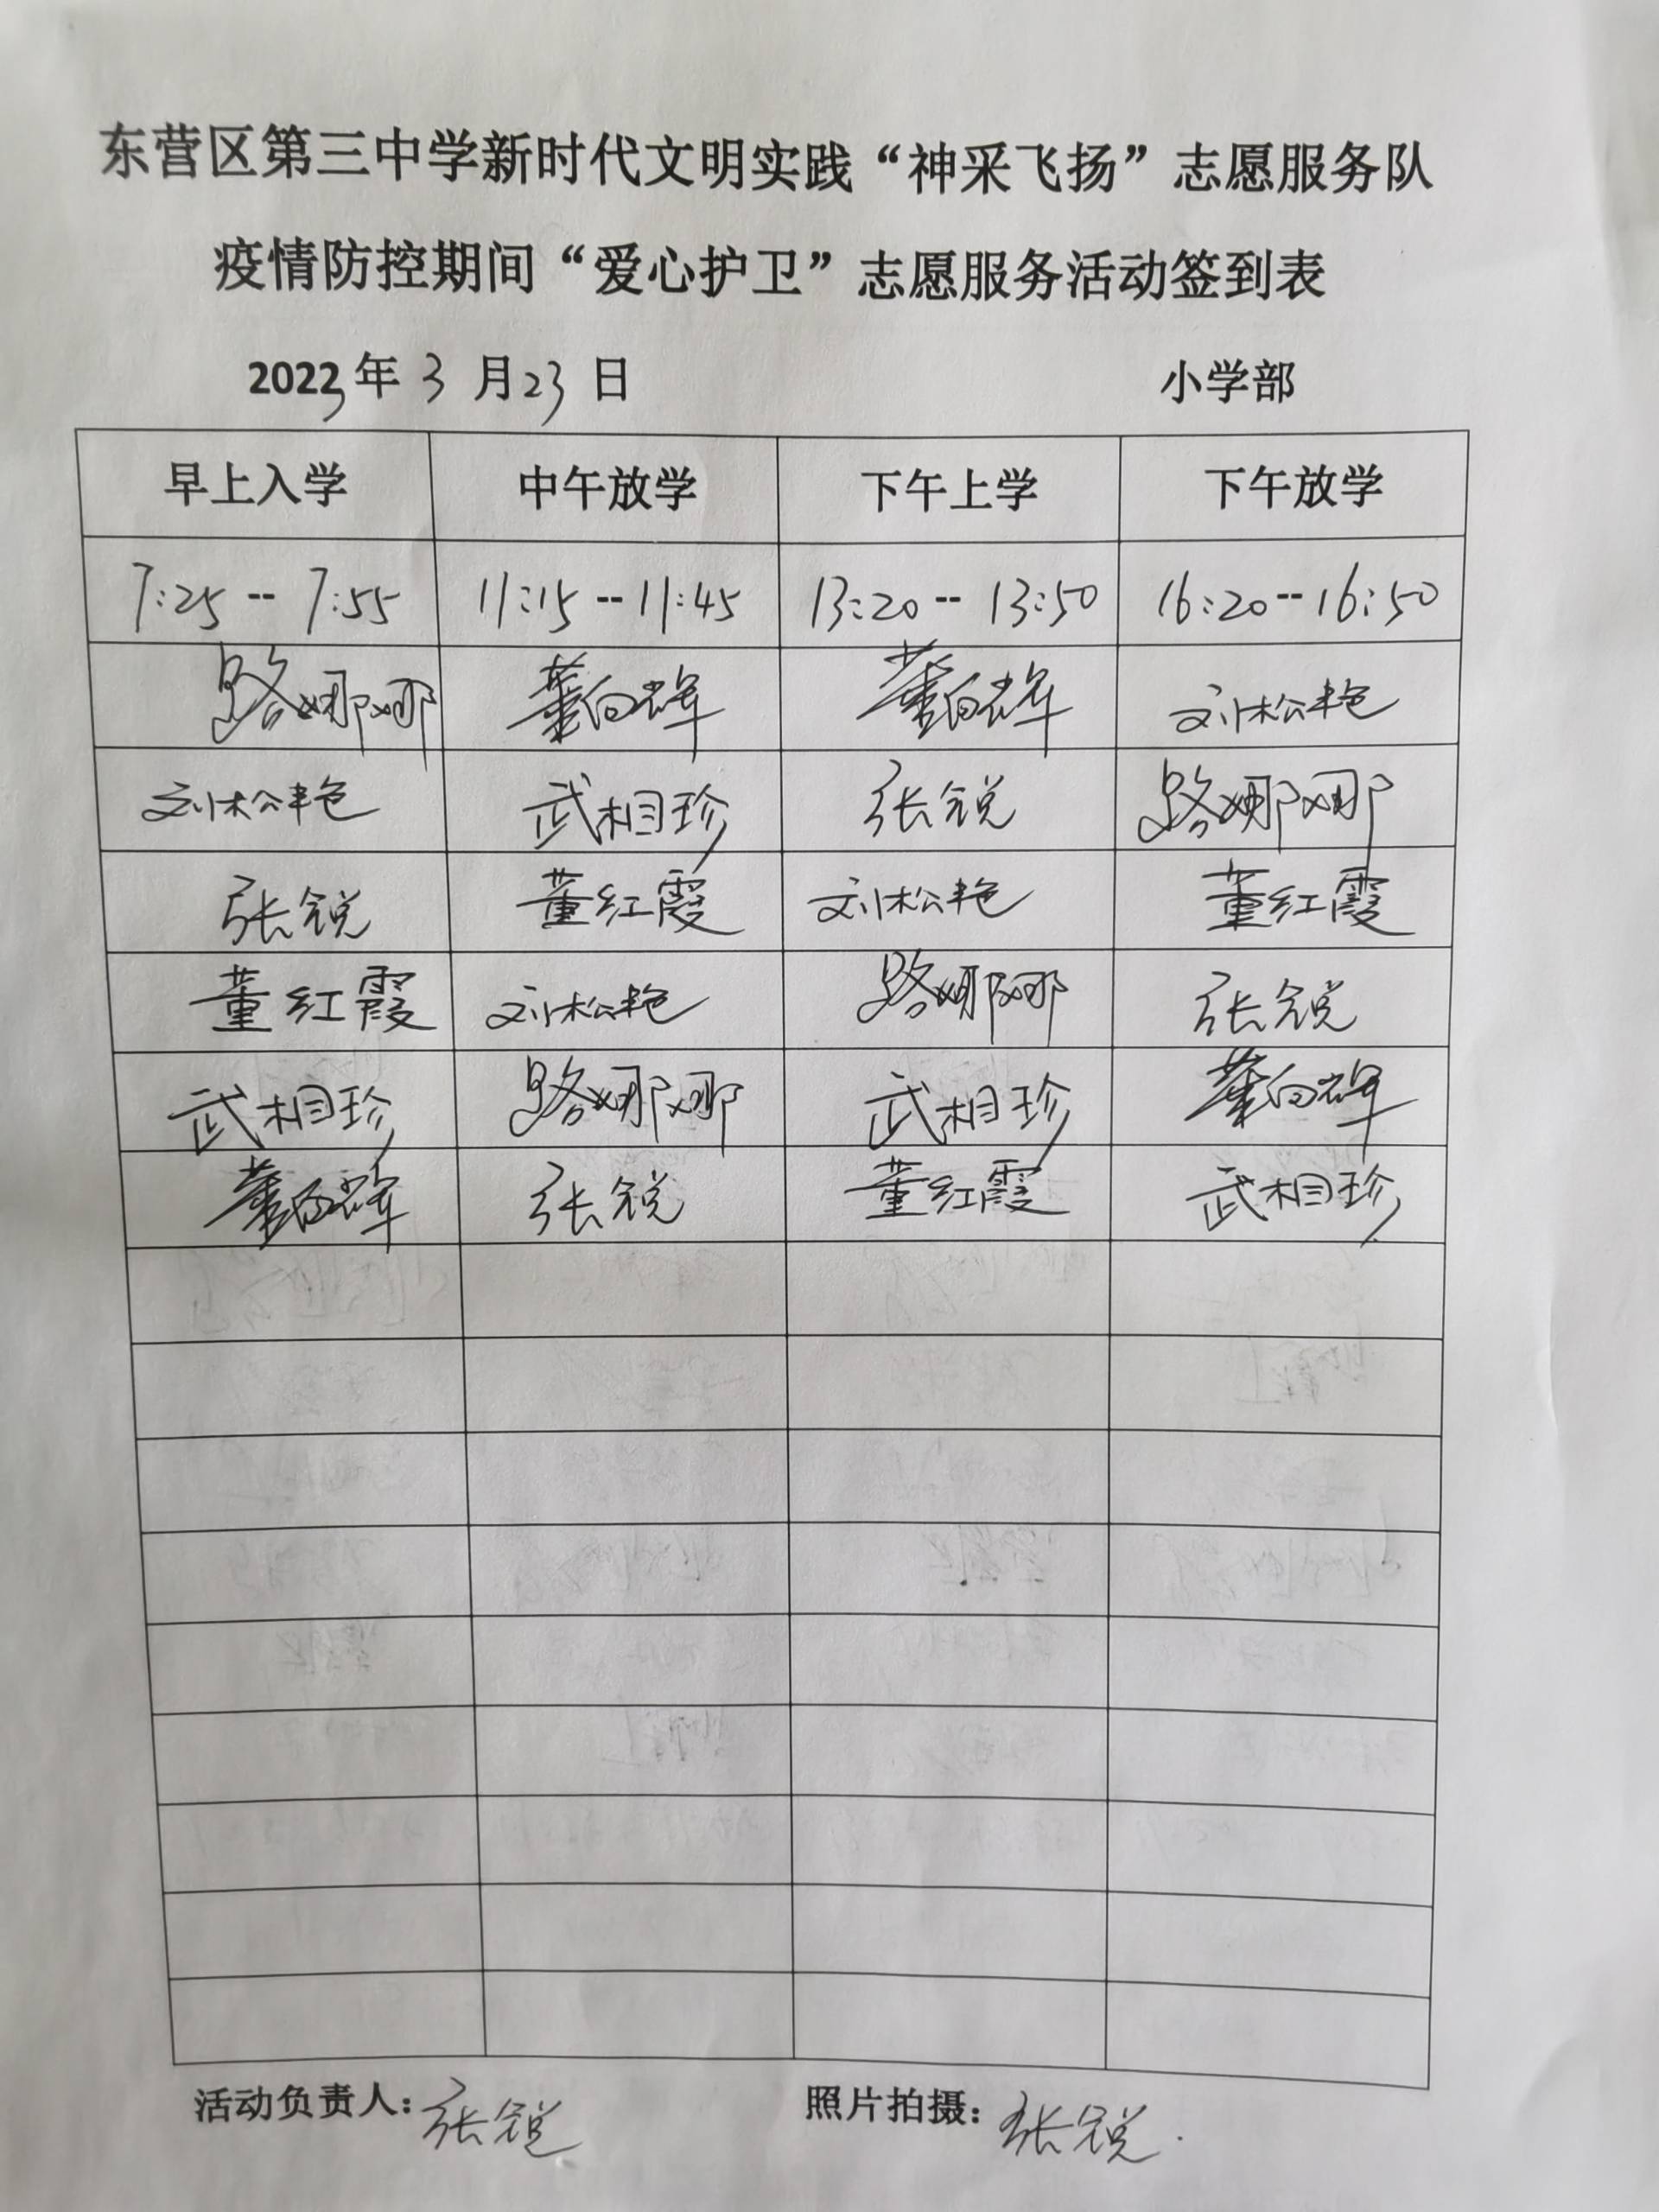 东营区第三中学新时代文明实践“神采飞扬”志愿服务队
疫情防控期间“爱心护卫”志愿服务活动签到表
2023年3月23日 小学部
早上入学 中午放学 下午上学 下午放学
7:25--7:55 11:15--11:45 13:20--13:50 16:20--16:50
路娜娜 董向辉 董向辉 刘松艳
刘松艳 武相珍 张锐 路娜娜
张锐 董红霞 刘松艳 董红霞
董红霞 刘松艳 路娜娜 张锐
武相珍 路娜娜 武相珍 董向辉
董向辉 张锐 董红霞 武相珍
活动负责人：张锐 照片拍摄：张锐.